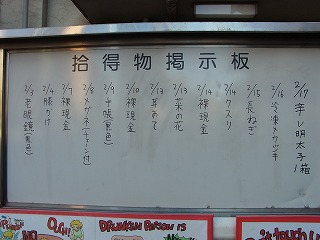 拾得物掲示板
2/17 辛し明太子1箱
2/16 冷凍メカジキ
2/15 長ねぎ
2/14 クスリ
2/14 裸現金
2/13 菜の花
2/13 耳あて
2/10 裸現金
2/9 手帳(黒色)
2/8 メガネ(チェーン付)
2/7 裸現金
2/4 膝かけ
2/3 老眼鏡(黒色)
OUCH!
DRUNKEN PERSON IS
Don't touch